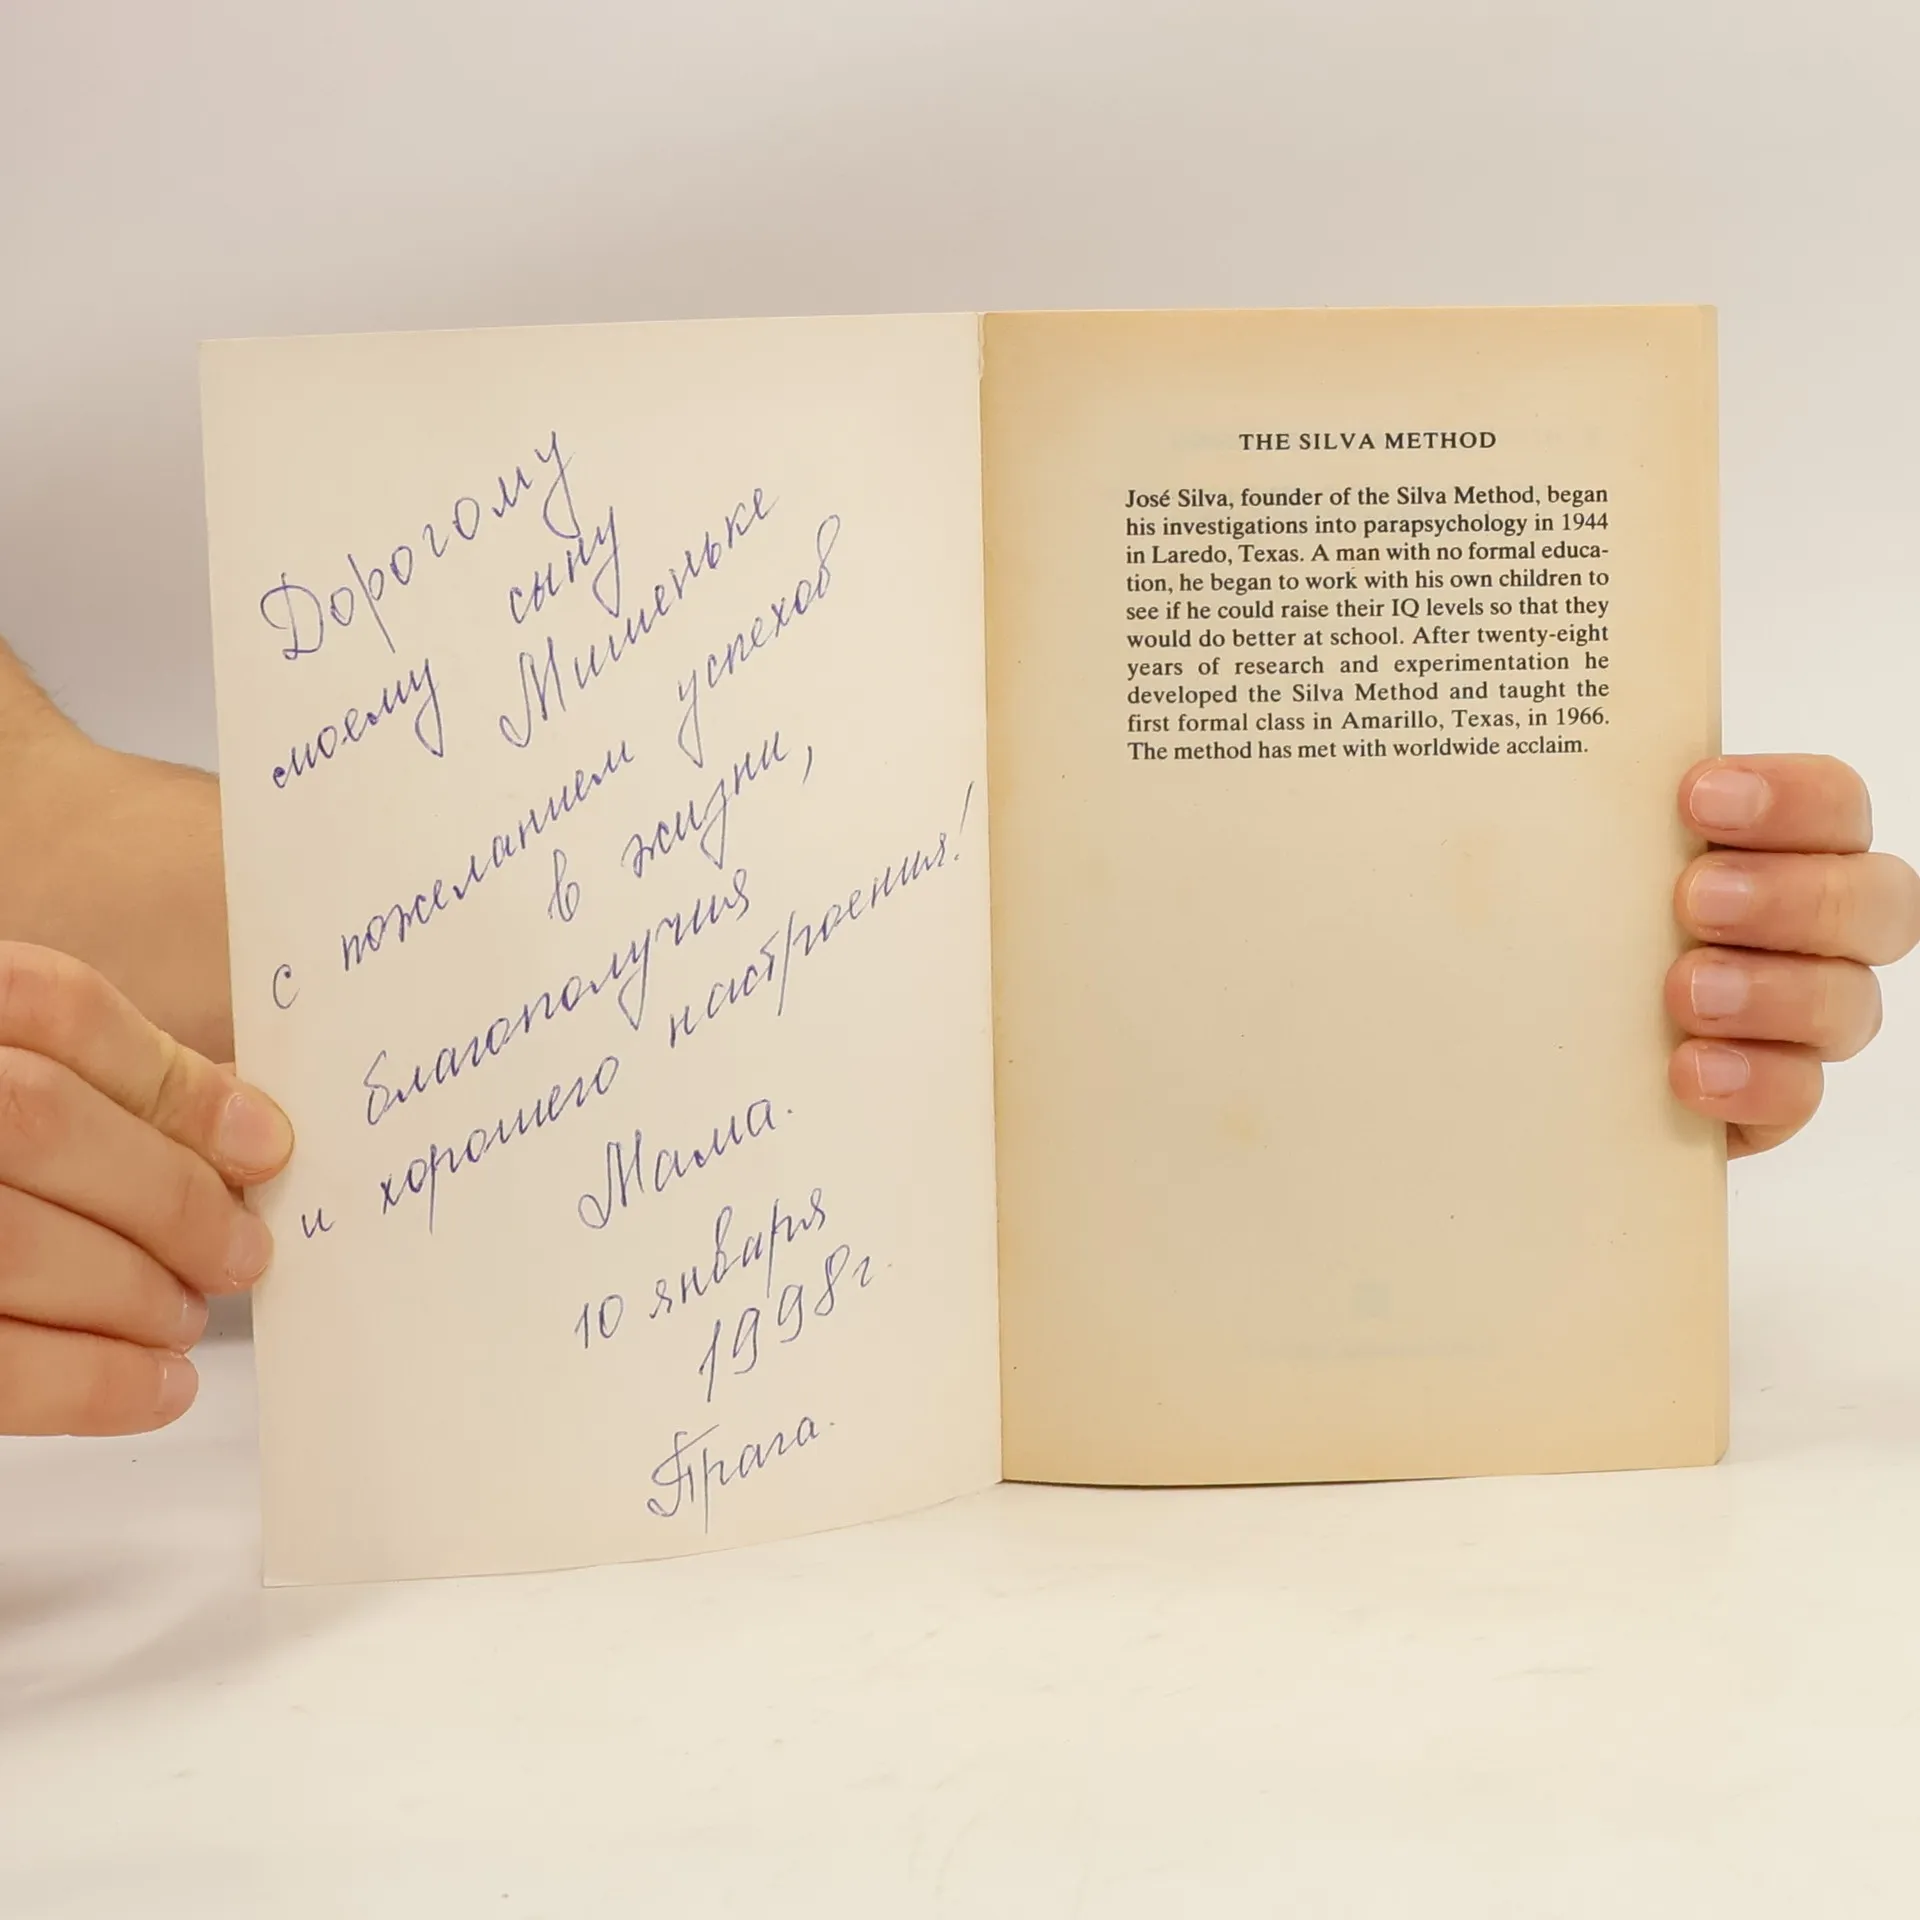 Дорогому
моему сыну
Мишеньке
с пожеланием успехов
в жизни,
благополучия
и хорошего настроения!
Мама.
10 января
1998г.
Прага.
THE SILVA METHOD
José Silva, founder of the Silva Method, began
his investigations into parapsychology in 1944
in Laredo, Texas. A man with no formal educa-
tion, he began to work with his own children to
see if he could raise their IQ levels so that they
would do better at school. After twenty-eight
years of research and experimentation he
developed the Silva Method and taught the
first formal class in Amarillo, Texas, in 1966.
The method has met with worldwide acclaim.